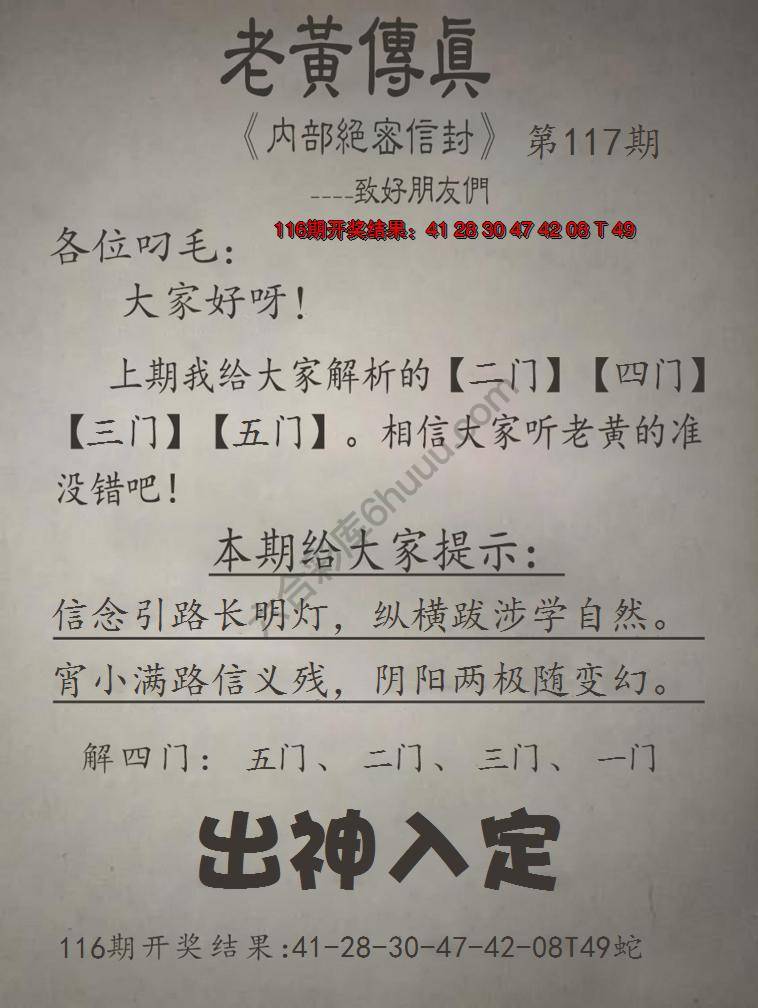 老黃傳眞
《内部絕密信封》 第117期
----致好朋友們
116期开奖结果：41 28 30 47 42 08 T 49
各位叼毛：
大家好呀！
上期我给大家解析的【二门】【四门】
【三门】【五门】。相信大家听老黄的准
没错吧！
本期给大家提示：
信念引路长明灯，纵横跋涉学自然。
宵小满路信义残，阴阳两极随变幻。
解四门： 五门、 二门、 三门、 一门
出神入定
116期开奖结果:41-28-30-47-42-08T49蛇
六合彩库6huuu.com